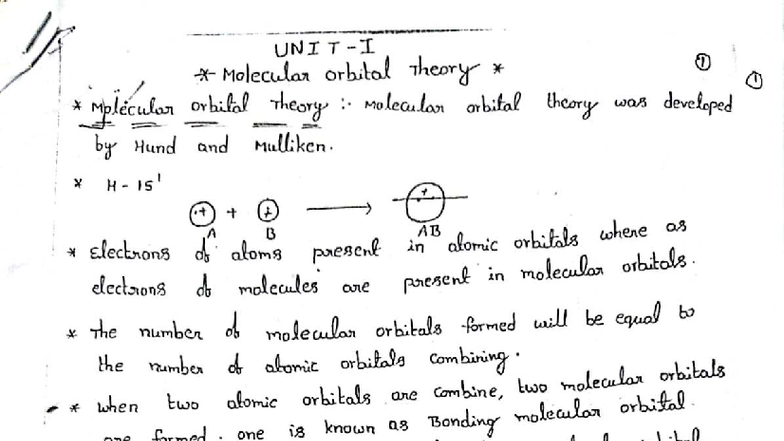 UNIT-I
* Molecular orbital Theory *
① ①
* Molecular orbital Theory :- Molecular orbital theory was developed
by Hund and Mulliken.
* H - 1S¹
+ + + → +
A B AB
* Electrons of atoms present in atomic orbitals where as
electrons of molecules are present in molecular orbitals.
* The number of molecular orbitals formed will be equal to
the number of atomic orbitals combining.
* when two atomic orbitals are combine, two molecular orbitals
are formed. one is known as Bonding molecular orbital